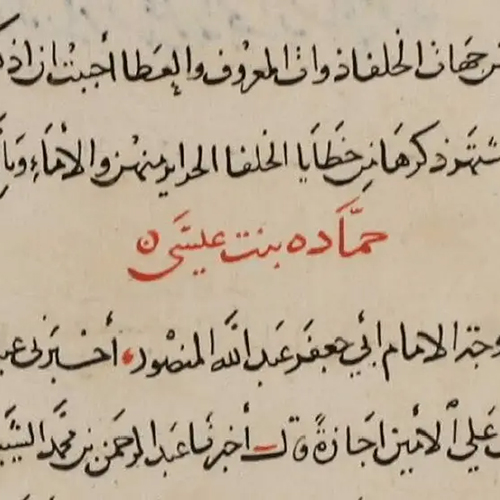 من جهات الخلفا ذوات المعروف والعطا أجبت ان اذكر
اشتهر ذكرها من حظايا الخلفا الحراير منهن والأماء
حمَّاده بنت عيسَى
زوجة الامام أبي جعفر عَبد الله المنصور أخبرني
علي الامين اجازةً قال أخبرنا عبد الرحمن بن محمَّد الشيباني